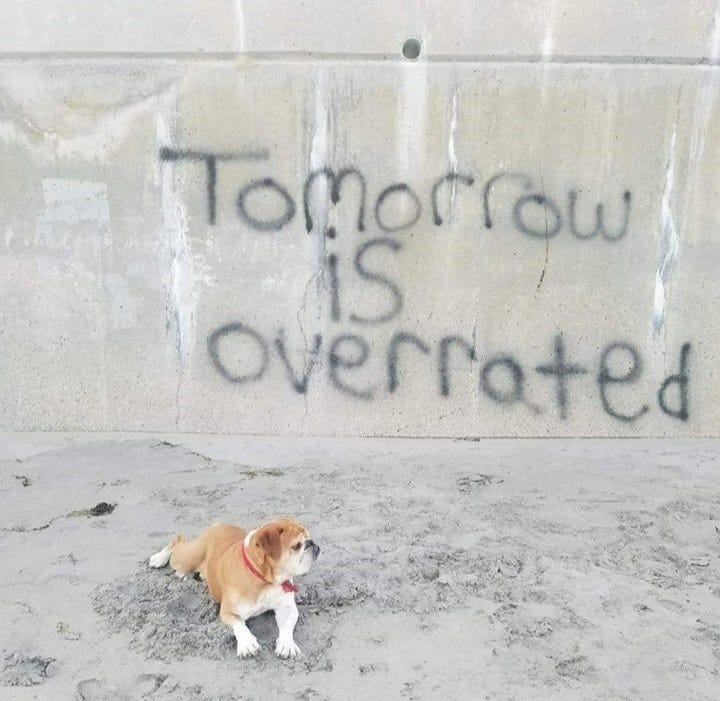 Tomorrow
is
overrated